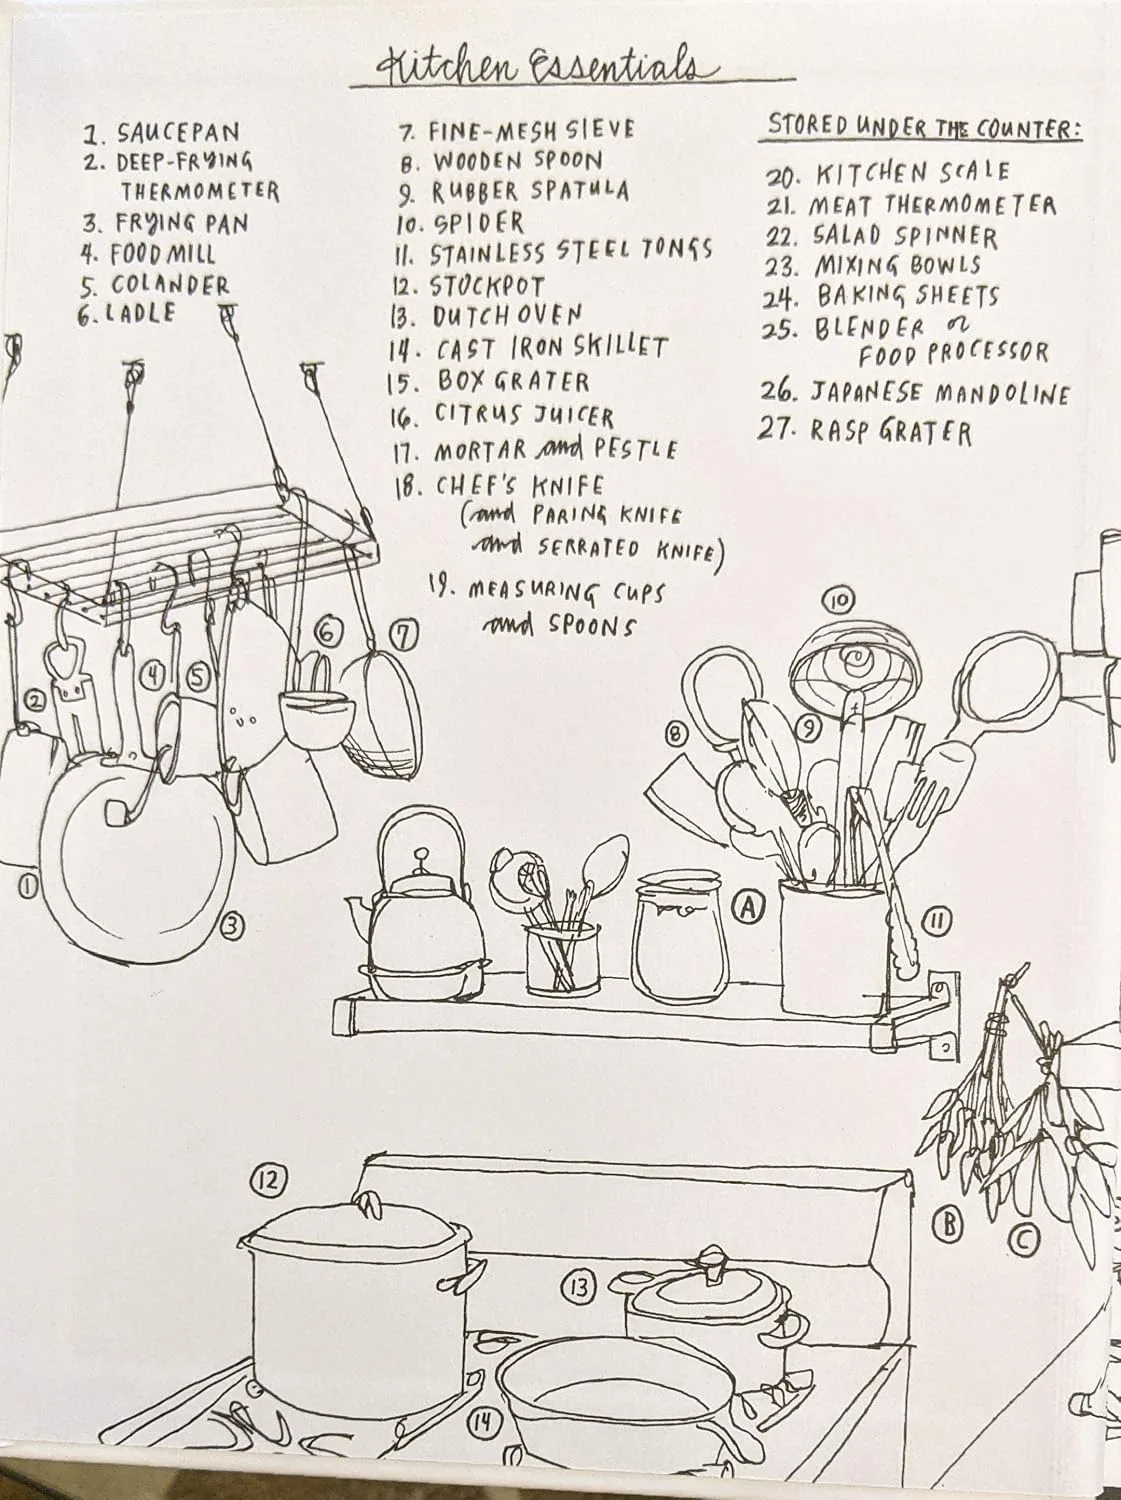 Kitchen Essentials
1. SAUCEPAN
2. DEEP-FRYING
THERMOMETER
3. FRYING PAN
4. FOOD MILL
5. COLANDER
6. LADLE
7. FINE-MESH SIEVE
8. WOODEN SPOON
9. RUBBER SPATULA
10. SPIDER
11. STAINLESS STEEL TONGS
12. STOCKPOT
13. DUTCH OVEN
14. CAST IRON SKILLET
15. BOX GRATER
16. CITRUS JUICER
17. MORTAR and PESTLE
18. CHEF'S KNIFE
(and PARING KNIFE
and SERRATED KNIFE)
19. MEASURING CUPS
and SPOONS
STORED UNDER THE COUNTER:
20. KITCHEN SCALE
21. MEAT THERMOMETER
22. SALAD SPINNER
23. MIXING BOWLS
24. BAKING SHEETS
25. BLENDER or
FOOD PROCESSOR
26. JAPANESE MANDOLINE
27. RASP GRATER
10
6
7
4
5
2
8
9
1
3
A
11
12
B
C
13
14